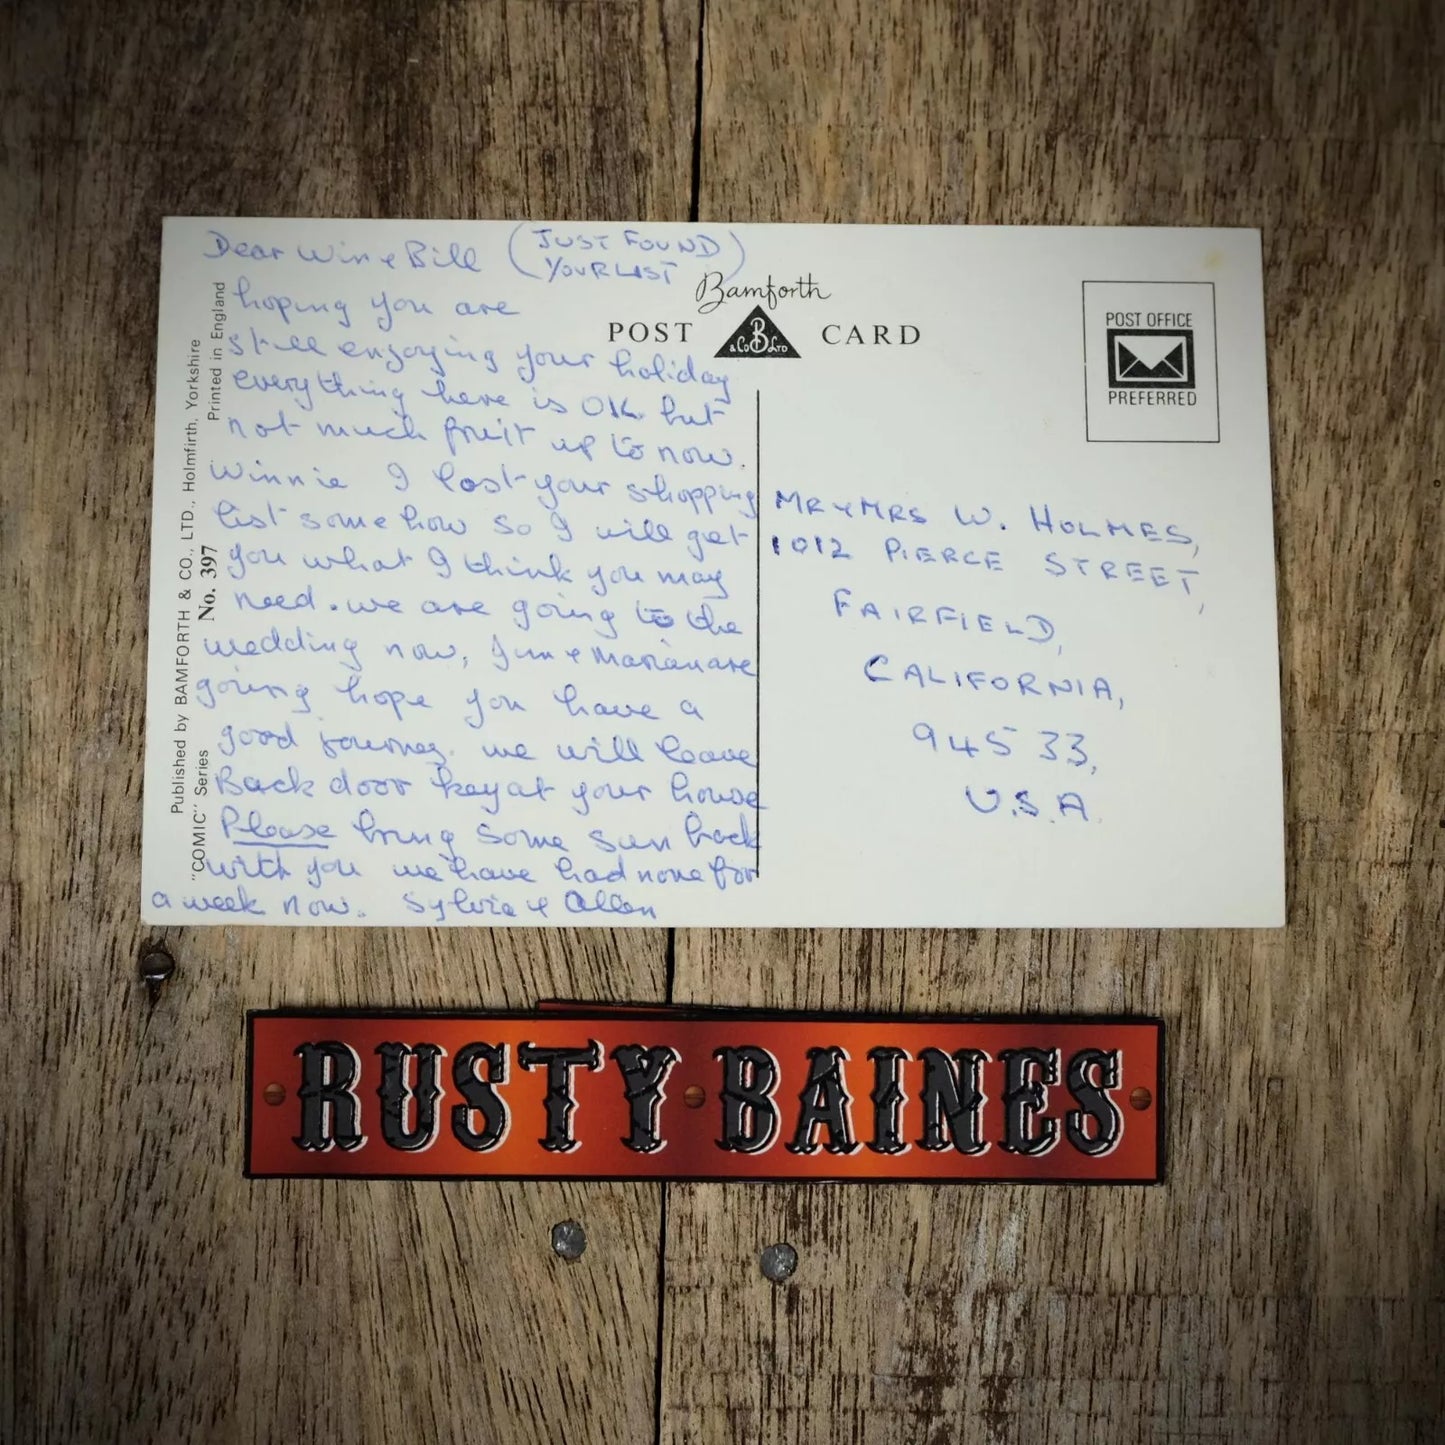 Dear Win & Bill (JUST FOUND
YOUR LIST)
hoping you are
still enjoying your holiday
everything here is OK. but
not much fruit up to now.
Winnie I lost your shopping
list some how so I will get
you what I think you may
need. we are going to the
wedding now, & are
going hope you have a
good journey. we will leave
Back door key at your house
Please bring some sun back
with you we have had none for
a week now. Sylvia & Allen
Bamforth
POST CARD
B
& Co LTD
POST OFFICE
PREFERRED
MR & MRS W. HOLMES,
1012 PIERCE STREET,
FAIRFIELD,
CALIFORNIA,
94533,
U.S.A.
Published by BAMFORTH & CO., LTD., Holmfirth, Yorkshire
"COMIC" Series No. 397 Printed in England
RUSTY BAINES